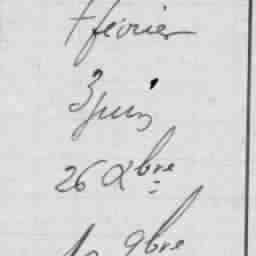 7 février
3 juin
26 Xbre
9bre